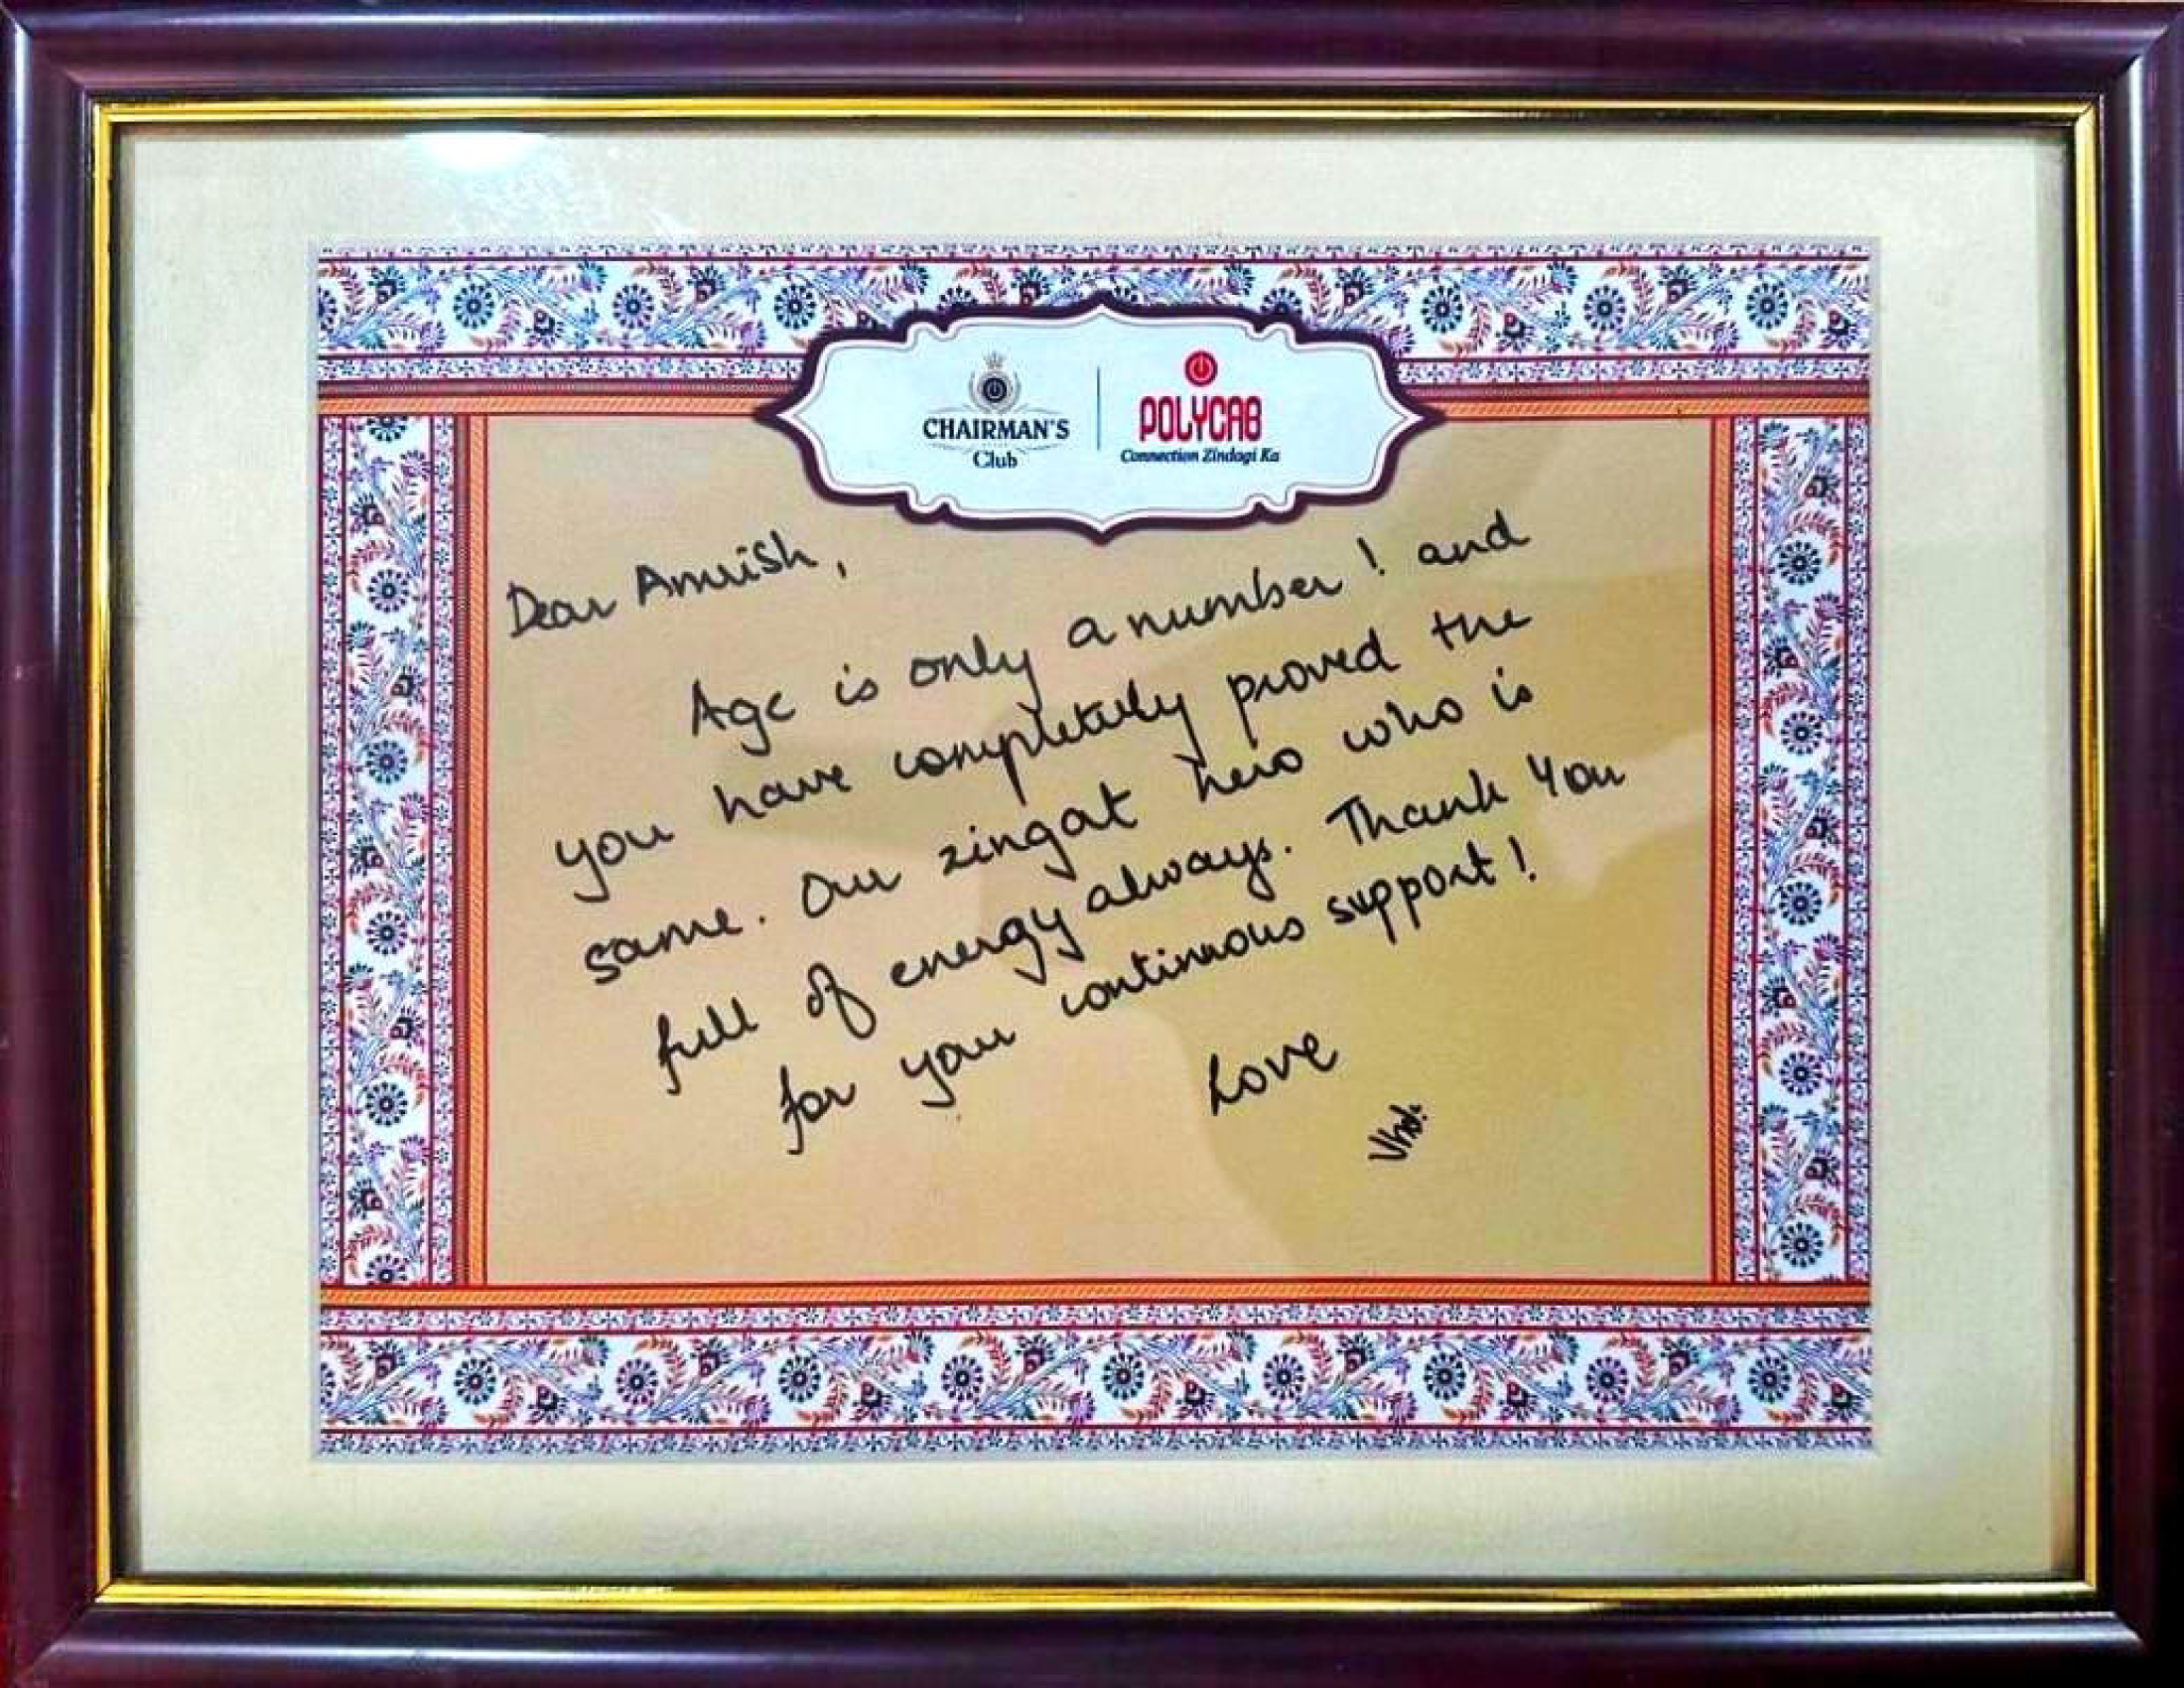 CHAIRMAN'S
Club
POLYCAB
Connection Zindagi Ka
Dear Amrish,
Age is only a number! and
you have completely proved the
same. Our zingat hero who is
full of energy always. Thank You
for your continuous support!
Love